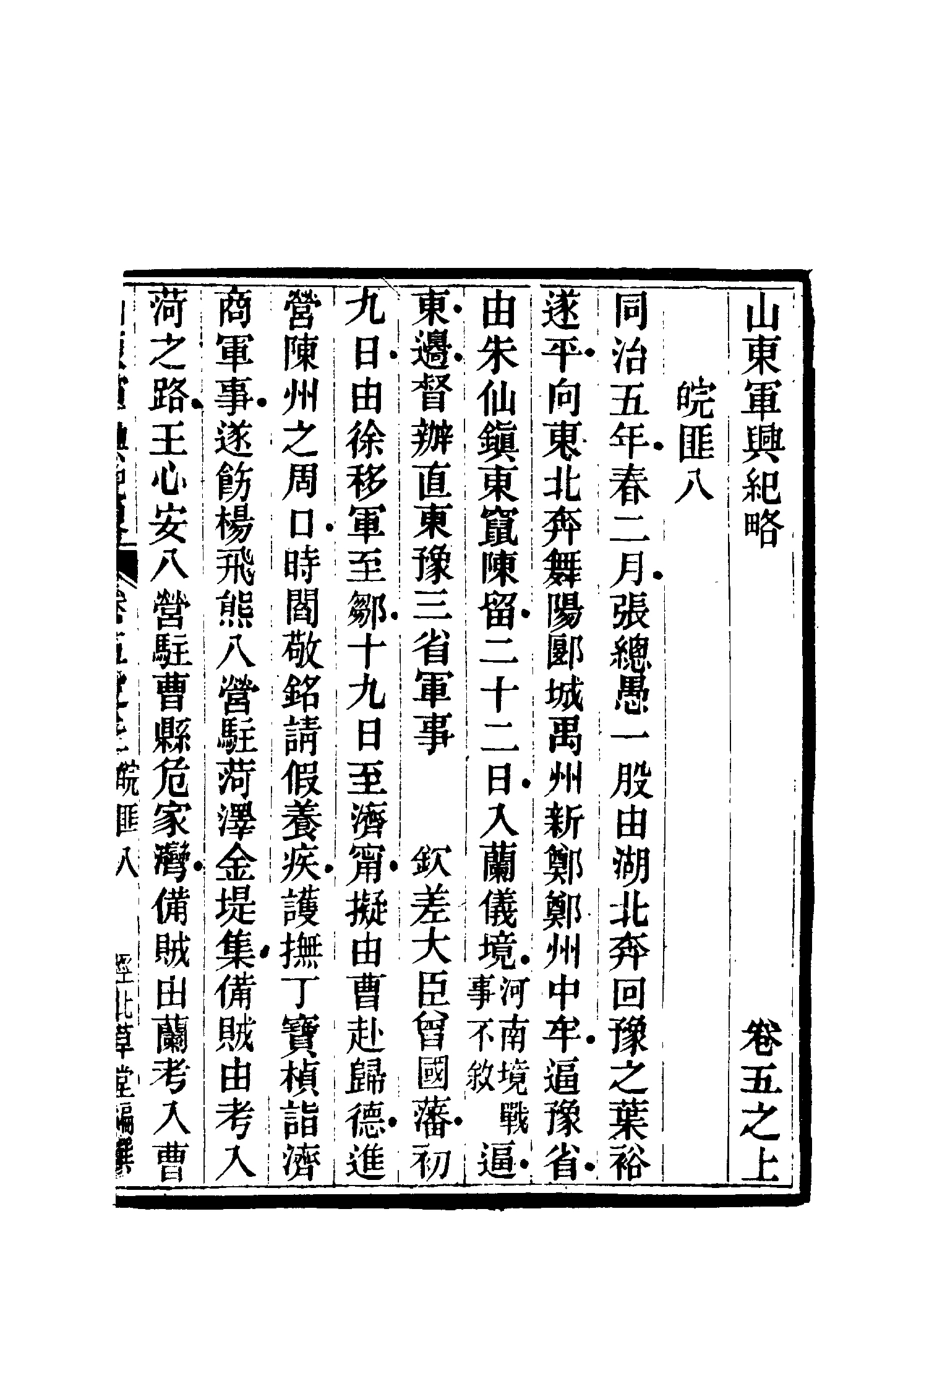 山東軍興紀略　卷五之上
皖匪八
同治五年春二月張總愚一股由湖北奔回豫之葉裕
遂平向東北奔舞陽郾城禹州新鄭鄭州中牟逼豫省
由朱仙鎭東竄陳留二十二日入蘭儀境河南境戰事不敘逼
東邊督辦直東豫三省軍事　欽差大臣曾國藩初
九日由徐移軍至鄒十九日至濟甯擬由曹赴歸德進
營陳州之周口時閻敬銘請假養疾護撫丁寶楨詣濟
商軍事遂飭楊飛熊八營駐菏澤金堤集備賊由考入
菏之路王心安八營駐曹縣危家灣備賊由蘭考入曹
山東軍興紀略　卷五之上皖匪八　草堂編撰